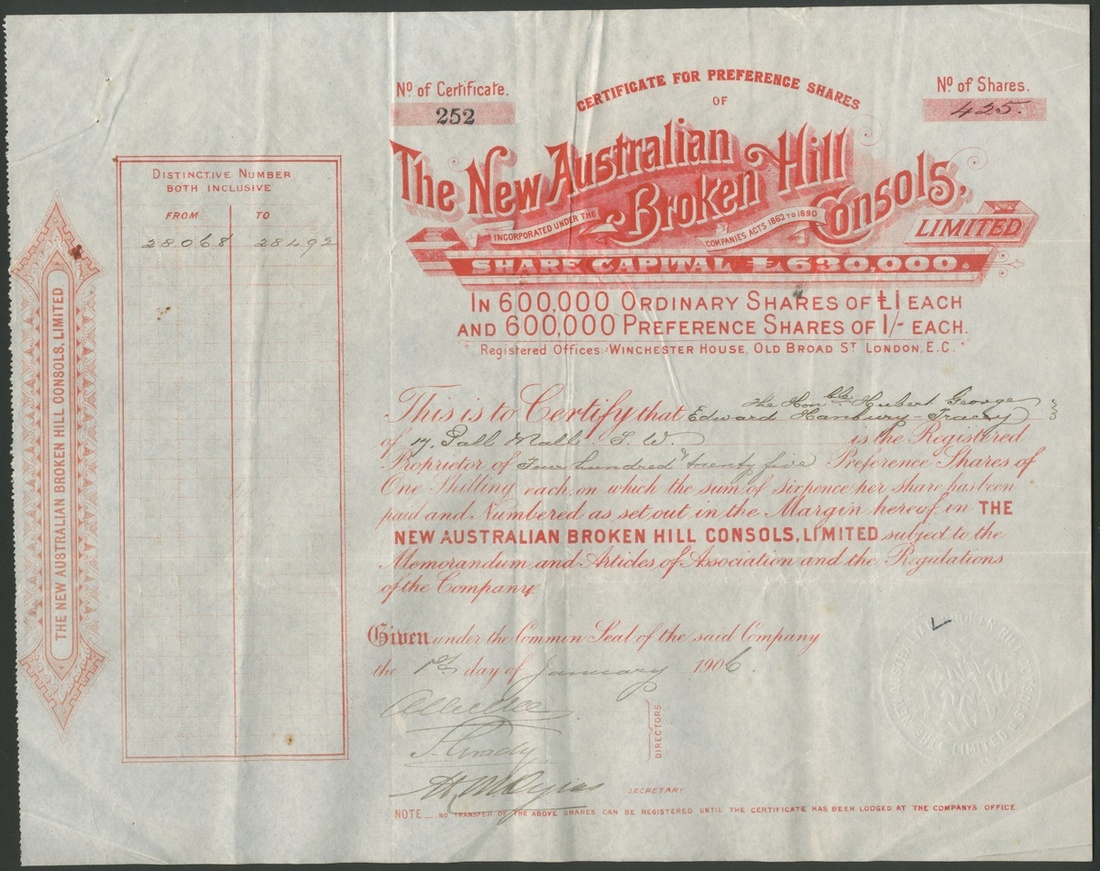 No. of Certificate.
252
CERTIFICATE FOR PREFERENCE SHARES
OF
No. of Shares.
425.
The New Australian
Broken Hill
Consols,
INCORPORATED UNDER THE
COMPANIES ACTS 1862 TO 1890
LIMITED
SHARE CAPITAL £630,000.
IN 600,000 ORDINARY SHARES OF £1 EACH
AND 600,000 PREFERENCE SHARES OF 1/- EACH.
Registered Offices: WINCHESTER HOUSE, OLD BROAD ST LONDON, E.C.
DISTINCTIVE NUMBER
BOTH INCLUSIVE
FROM TO
28068 28492
THE NEW AUSTRALIAN BROKEN HILL CONSOLS, LIMITED
The Honble Hubert George
This is to Certify that Edward Hanbury-Tracy
of 17, Pall Mall S.W. is the Registered
Proprietor of Four hundred & twenty five Preference Shares of
One Shilling each, on which the sum of sixpence per share has been
paid and Numbered as set out in the Margin hereof in THE
NEW AUSTRALIAN BROKEN HILL CONSOLS, LIMITED subject to the
Memorandum and Articles of Association and the Regulations
of the Company.
Given under the Common Seal of the said Company
the 1st day of January 1906.
DIRECTORS
SECRETARY
NOTE. — NO TRANSFER OF THE ABOVE SHARES CAN BE REGISTERED UNTIL THE CERTIFICATE HAS BEEN LODGED AT THE COMPANYS OFFICE